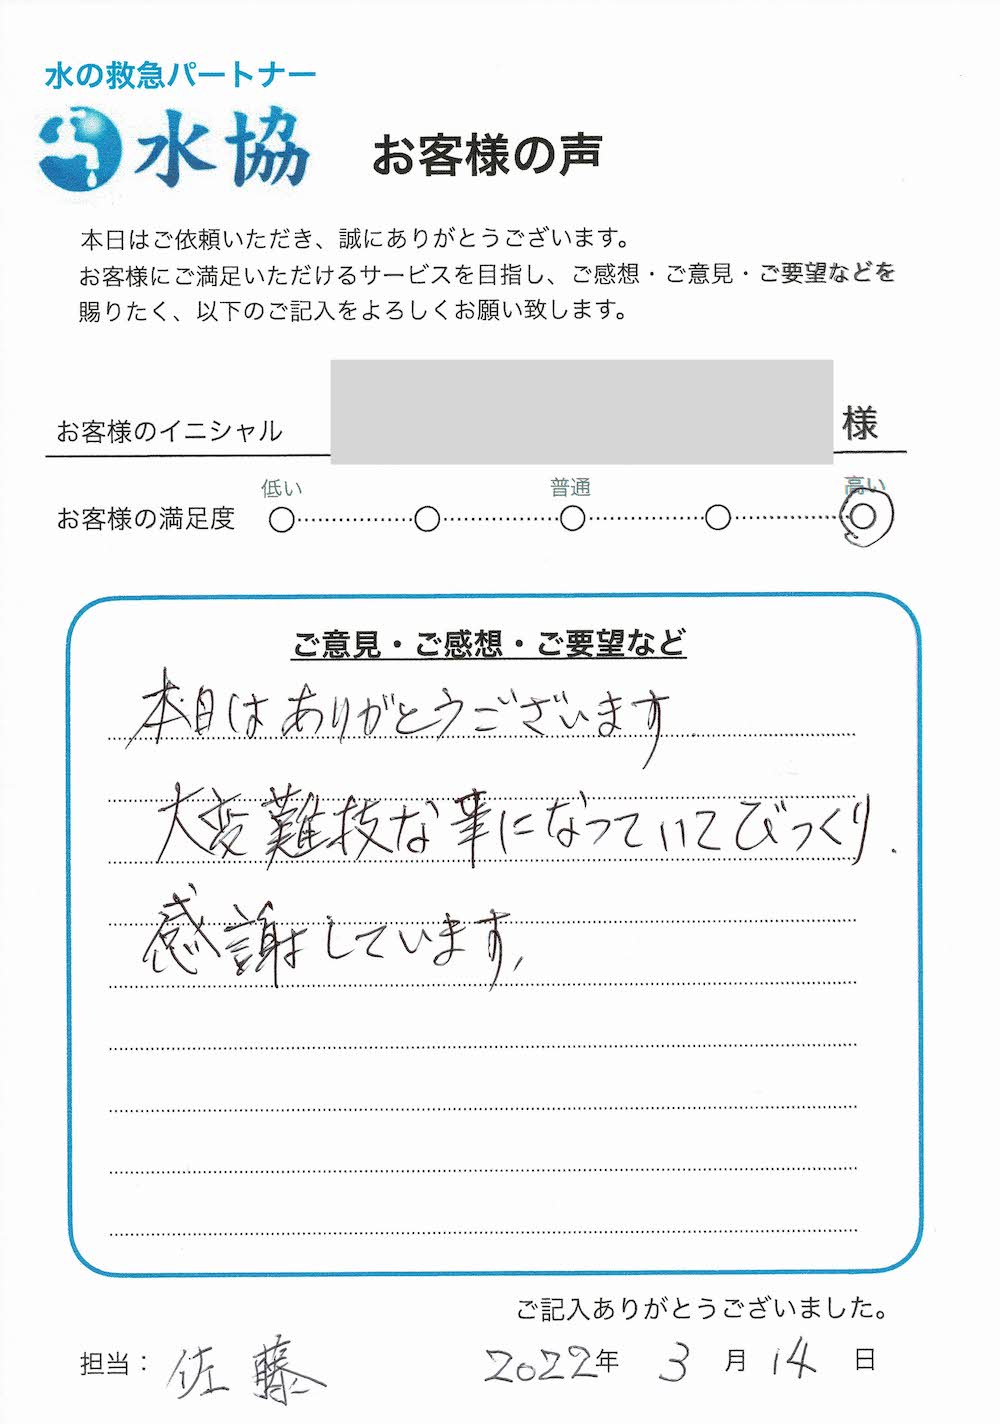 水の救急パートナー
水協
お客様の声
本日はご依頼いただき、誠にありがとうございます。
お客様にご満足いただけるサービスを目指し、ご感想・ご意見・ご要望などを
賜りたく、以下のご記入をよろしくお願い致します。
お客様のイニシャル 様
低い 普通 高い
お客様の満足度
ご意見・ご感想・ご要望など
本日はありがとうございます
大変難技な事になっていてびっくり.
感謝しています,
ご記入ありがとうございました。
担当： 佐藤 2022年 3月 14日